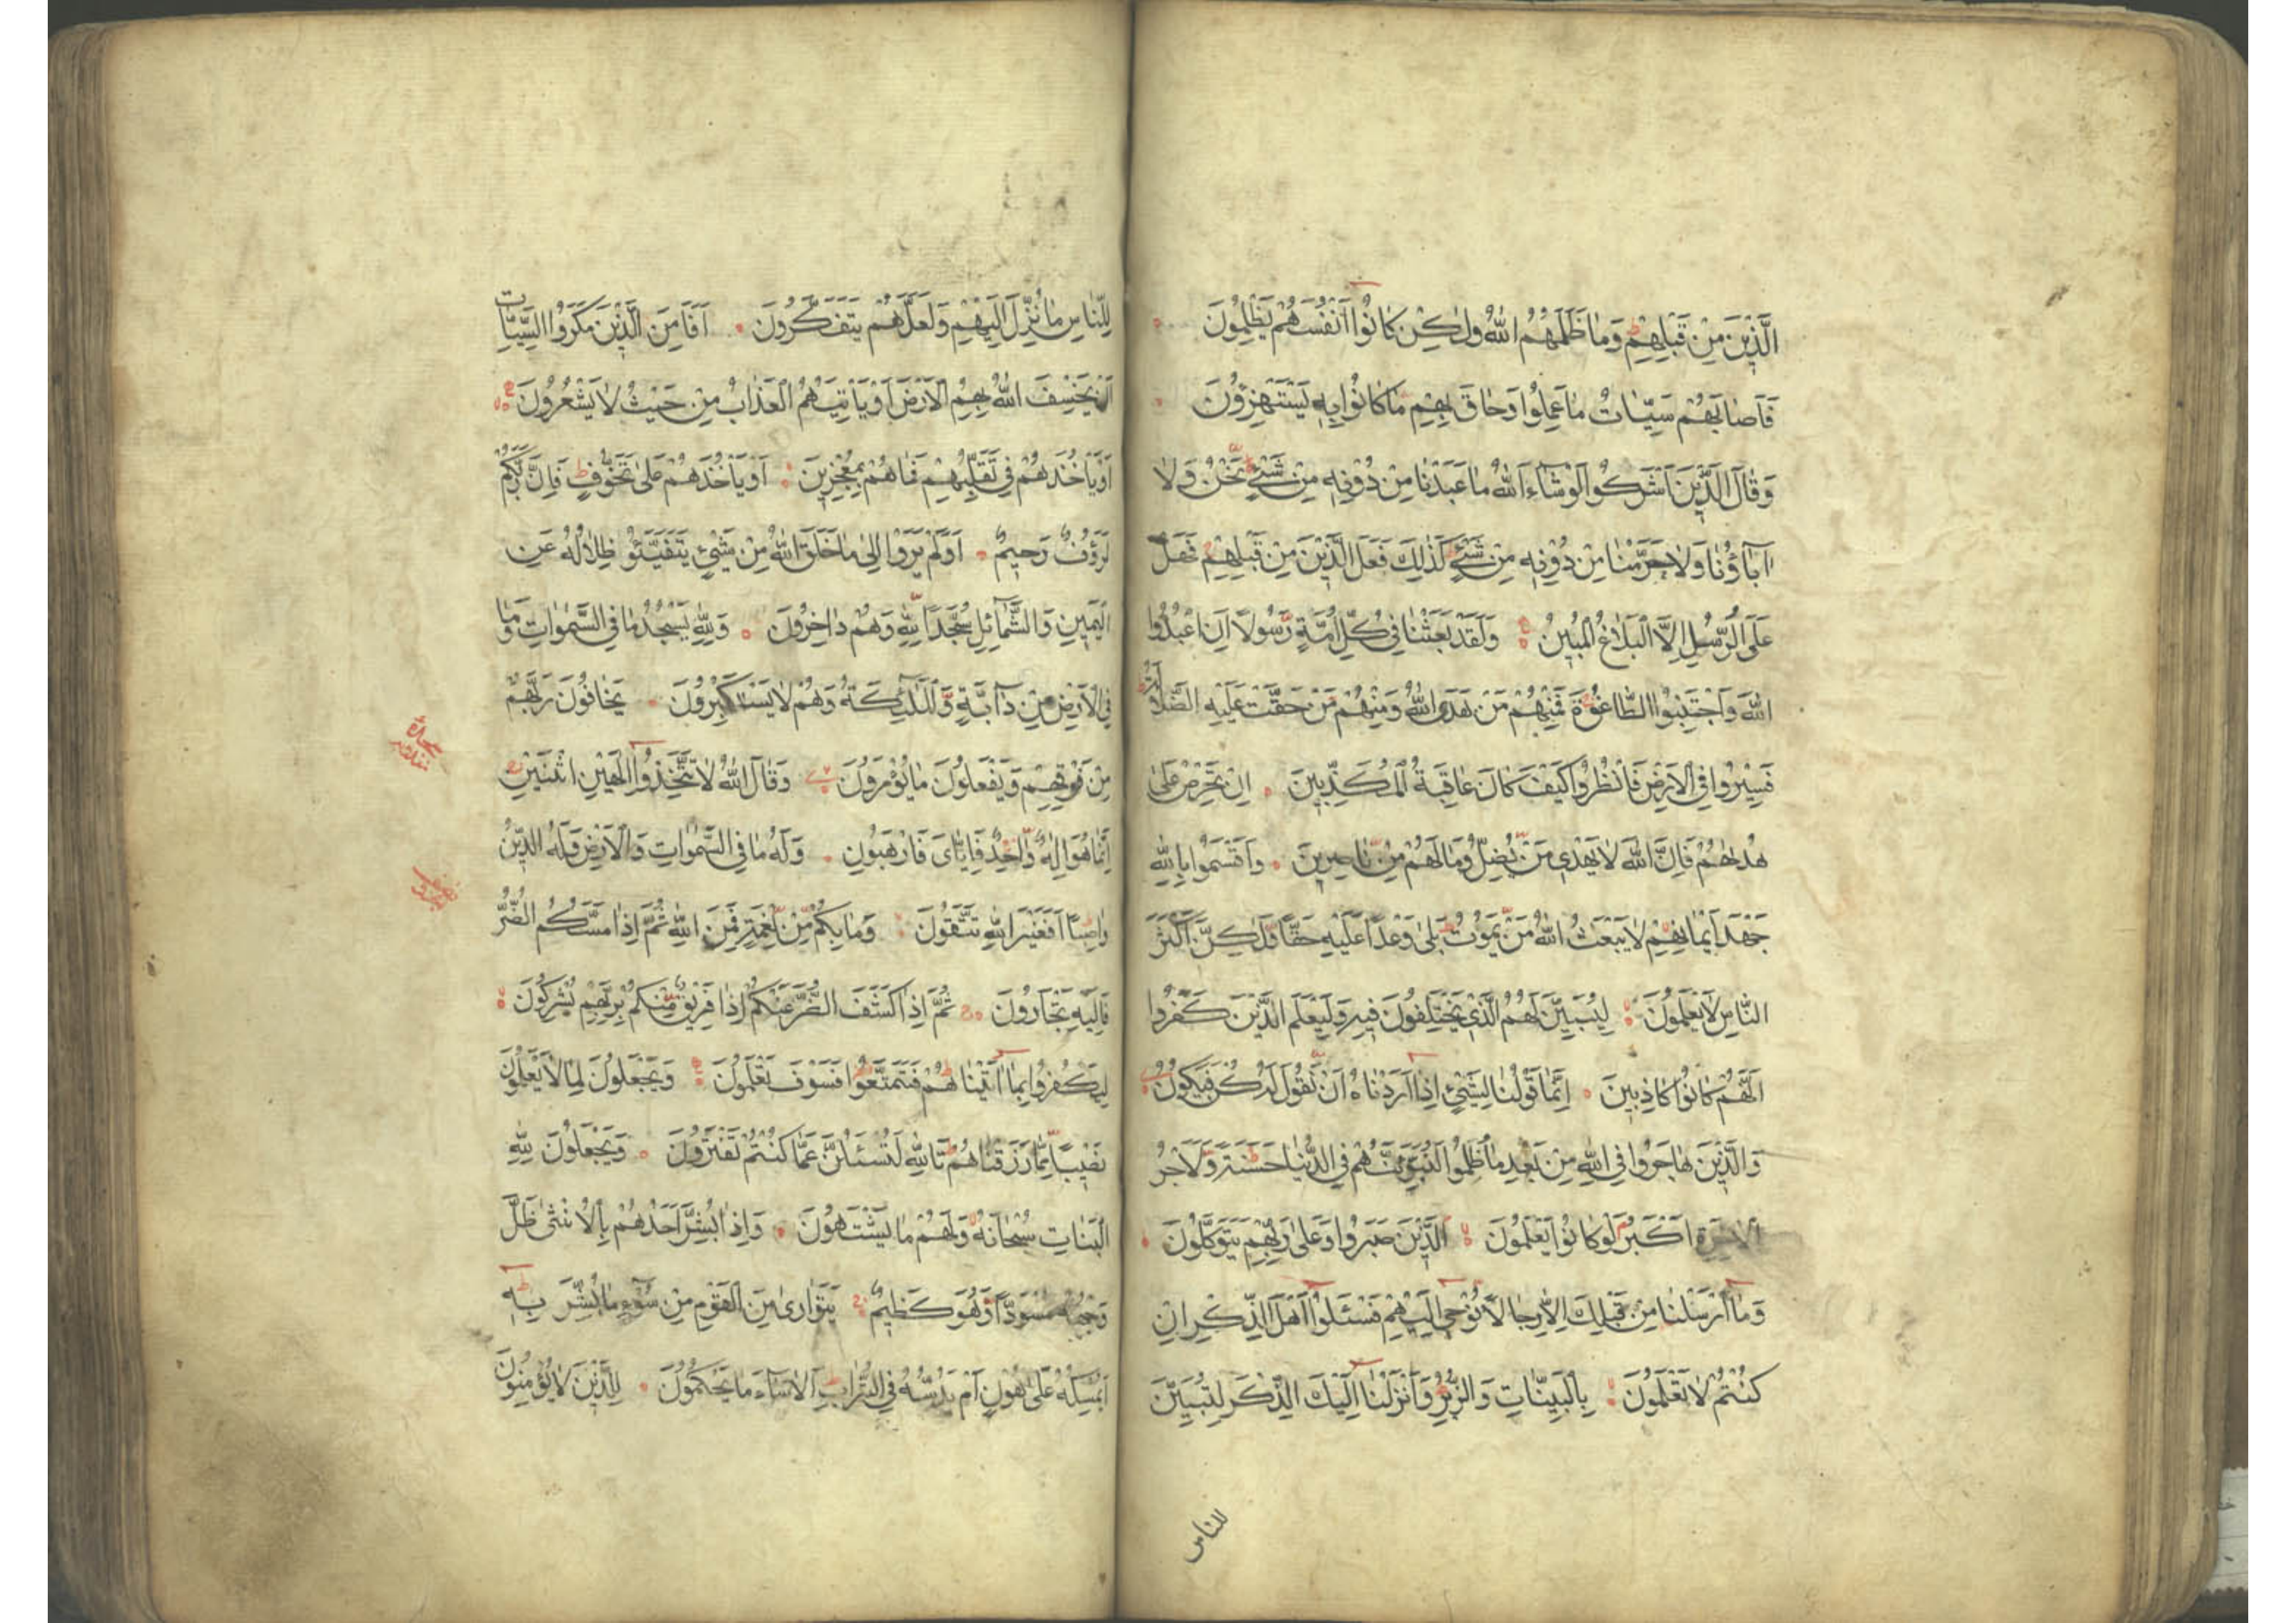 الَّذِينَ مِنْ قَبْلِهِمْ وَمَا ظَلَمَهُمُ اللّٰهُ وَلٰكِنْ كَانُوا اَنْفُسَهُمْ يَظْلِمُونَ
فَاَصَابَهُمْ سَيِّـَٔاتُ مَا عَمِلُوا وَحَاقَ بِهِمْ مَا كَانُوا بِهِ يَسْتَهْزِؤُنَ
وَقَالَ الَّذِينَ اَشْرَكُوا لَوْ شَاءَ اللّٰهُ مَا عَبَدْنَا مِنْ دُونِهِ مِنْ شَيْءٍ نَحْنُ وَلَا
اٰبَاؤُنَا وَلَا حَرَّمْنَا مِنْ دُونِهِ مِنْ شَيْءٍ كَذٰلِكَ فَعَلَ الَّذِينَ مِنْ قَبْلِهِمْ فَهَلْ
عَلَى الرُّسُلِ اِلَّا الْبَلَاغُ الْمُبِينُ وَلَقَدْ بَعَثْنَا فِي كُلِّ اُمَّةٍ رَسُولًا اَنِ اعْبُدُوا
اللّٰهَ وَاجْتَنِبُوا الطَّاغُوتَ فَمِنْهُمْ مَنْ هَدَى اللّٰهُ وَمِنْهُمْ مَنْ حَقَّتْ عَلَيْهِ الضَّلَالَةُ
فَسِيرُوا فِي الْاَرْضِ فَانْظُرُوا كَيْفَ كَانَ عَاقِبَةُ الْمُكَذِّبِينَ اِنْ تَحْرِصْ عَلٰى
هُدٰىهُمْ فَاِنَّ اللّٰهَ لَا يَهْدِي مَنْ يُضِلُّ وَمَا لَهُمْ مِنْ نَاصِرِينَ وَاَقْسَمُوا بِاللّٰهِ
جَهْدَ اَيْمَانِهِمْ لَا يَبْعَثُ اللّٰهُ مَنْ يَمُوتُ بَلٰى وَعْدًا عَلَيْهِ حَقًّا وَلٰكِنَّ اَكْثَرَ
النَّاسِ لَا يَعْلَمُونَ لِيُبَيِّنَ لَهُمُ الَّذِي يَخْتَلِفُونَ فِيهِ وَلِيَعْلَمَ الَّذِينَ كَفَرُوا
اَنَّهُمْ كَانُوا كَاذِبِينَ اِنَّمَا قَوْلُنَا لِشَيْءٍ اِذَا اَرَدْنَاهُ اَنْ نَقُولَ لَهُ كُنْ فَيَكُونُ
وَالَّذِينَ هَاجَرُوا فِي اللّٰهِ مِنْ بَعْدِ مَا ظُلِمُوا لَنُبَوِّئَنَّهُمْ فِي الدُّنْيَا حَسَنَةً وَلَاَجْرُ
الْاٰخِرَةِ اَكْبَرُ لَوْ كَانُوا يَعْلَمُونَ الَّذِينَ صَبَرُوا وَعَلٰى رَبِّهِمْ يَتَوَكَّلُونَ
وَمَا اَرْسَلْنَا مِنْ قَبْلِكَ اِلَّا رِجَالًا نُوحِي اِلَيْهِمْ فَسْـَٔلُوا اَهْلَ الذِّكْرِ اِنْ
كُنْتُمْ لَا تَعْلَمُونَ بِالْبَيِّنَاتِ وَالزُّبُرِ وَاَنْزَلْنَا اِلَيْكَ الذِّكْرَ لِتُبَيِّنَ
للناس
لِلنَّاسِ مَا نُزِّلَ اِلَيْهِمْ وَلَعَلَّهُمْ يَتَفَكَّرُونَ اَفَاَمِنَ الَّذِينَ مَكَرُوا السَّيِّـَٔاتِ
اَنْ يَخْسِفَ اللّٰهُ بِهِمُ الْاَرْضَ اَوْ يَأْتِيَهُمُ الْعَذَابُ مِنْ حَيْثُ لَا يَشْعُرُونَ
اَوْ يَأْخُذَهُمْ فِي تَقَلُّبِهِمْ فَمَا هُمْ بِمُعْجِزِينَ اَوْ يَأْخُذَهُمْ عَلٰى تَخَوُّفٍ فَاِنَّ رَبَّكُمْ
لَرَؤُفٌ رَحِيمٌ اَوَلَمْ يَرَوْا اِلٰى مَا خَلَقَ اللّٰهُ مِنْ شَيْءٍ يَتَفَيَّؤُ ظِلَالُهُ عَنِ
الْيَمِينِ وَالشَّمَائِلِ سُجَّدًا لِلّٰهِ وَهُمْ دَاخِرُونَ وَلِلّٰهِ يَسْجُدُ مَا فِي السَّمٰوَاتِ وَمَا
فِي الْاَرْضِ مِنْ دَابَّةٍ وَالْمَلٰئِكَةُ وَهُمْ لَا يَسْتَكْبِرُونَ يَخَافُونَ رَبَّهُمْ
مِنْ فَوْقِهِمْ وَيَفْعَلُونَ مَا يُؤْمَرُونَ وَقَالَ اللّٰهُ لَا تَتَّخِذُوا اِلٰهَيْنِ اثْنَيْنِ
اِنَّمَا هُوَ اِلٰهٌ وَاحِدٌ فَاِيَّايَ فَارْهَبُونِ وَلَهُ مَا فِي السَّمٰوَاتِ وَالْاَرْضِ وَلَهُ الدِّينُ
وَاصِبًا اَفَغَيْرَ اللّٰهِ تَتَّقُونَ وَمَا بِكُمْ مِنْ نِعْمَةٍ فَمِنَ اللّٰهِ ثُمَّ اِذَا مَسَّكُمُ الضُّرُّ
فَاِلَيْهِ تَجْـَٔرُونَ ثُمَّ اِذَا كَشَفَ الضُّرَّ عَنْكُمْ اِذَا فَرِيقٌ مِنْكُمْ بِرَبِّهِمْ يُشْرِكُونَ
لِيَكْفُرُوا بِمَا اٰتَيْنَاهُمْ فَتَمَتَّعُوا فَسَوْفَ تَعْلَمُونَ وَيَجْعَلُونَ لِمَا لَا يَعْلَمُونَ
نَصِيبًا مِمَّا رَزَقْنَاهُمْ تَاللّٰهِ لَتُسْـَٔلُنَّ عَمَّا كُنْتُمْ تَفْتَرُونَ وَيَجْعَلُونَ لِلّٰهِ
الْبَنَاتِ سُبْحَانَهُ وَلَهُمْ مَا يَشْتَهُونَ وَاِذَا بُشِّرَ اَحَدُهُمْ بِالْاُنْثٰى ظَلَّ
وَجْهُهُ مُسْوَدًّا وَهُوَ كَظِيمٌ يَتَوَارٰى مِنَ الْقَوْمِ مِنْ سُوءِ مَا بُشِّرَ بِهِ
اَيُمْسِكُهُ عَلٰى هُونٍ اَمْ يَدُسُّهُ فِي التُّرَابِ اَلَا سَاءَ مَا يَحْكُمُونَ لِلَّذِينَ لَا يُؤْمِنُونَ